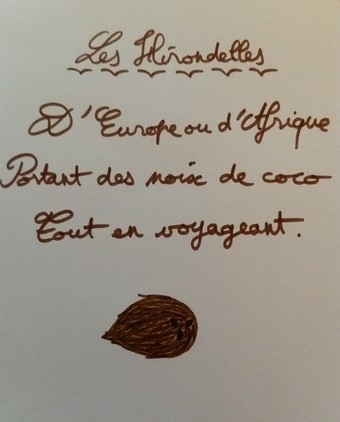 Les Hirondelles
D'Europe ou d'Afrique
Portant des noix de coco
Tout en voyageant.